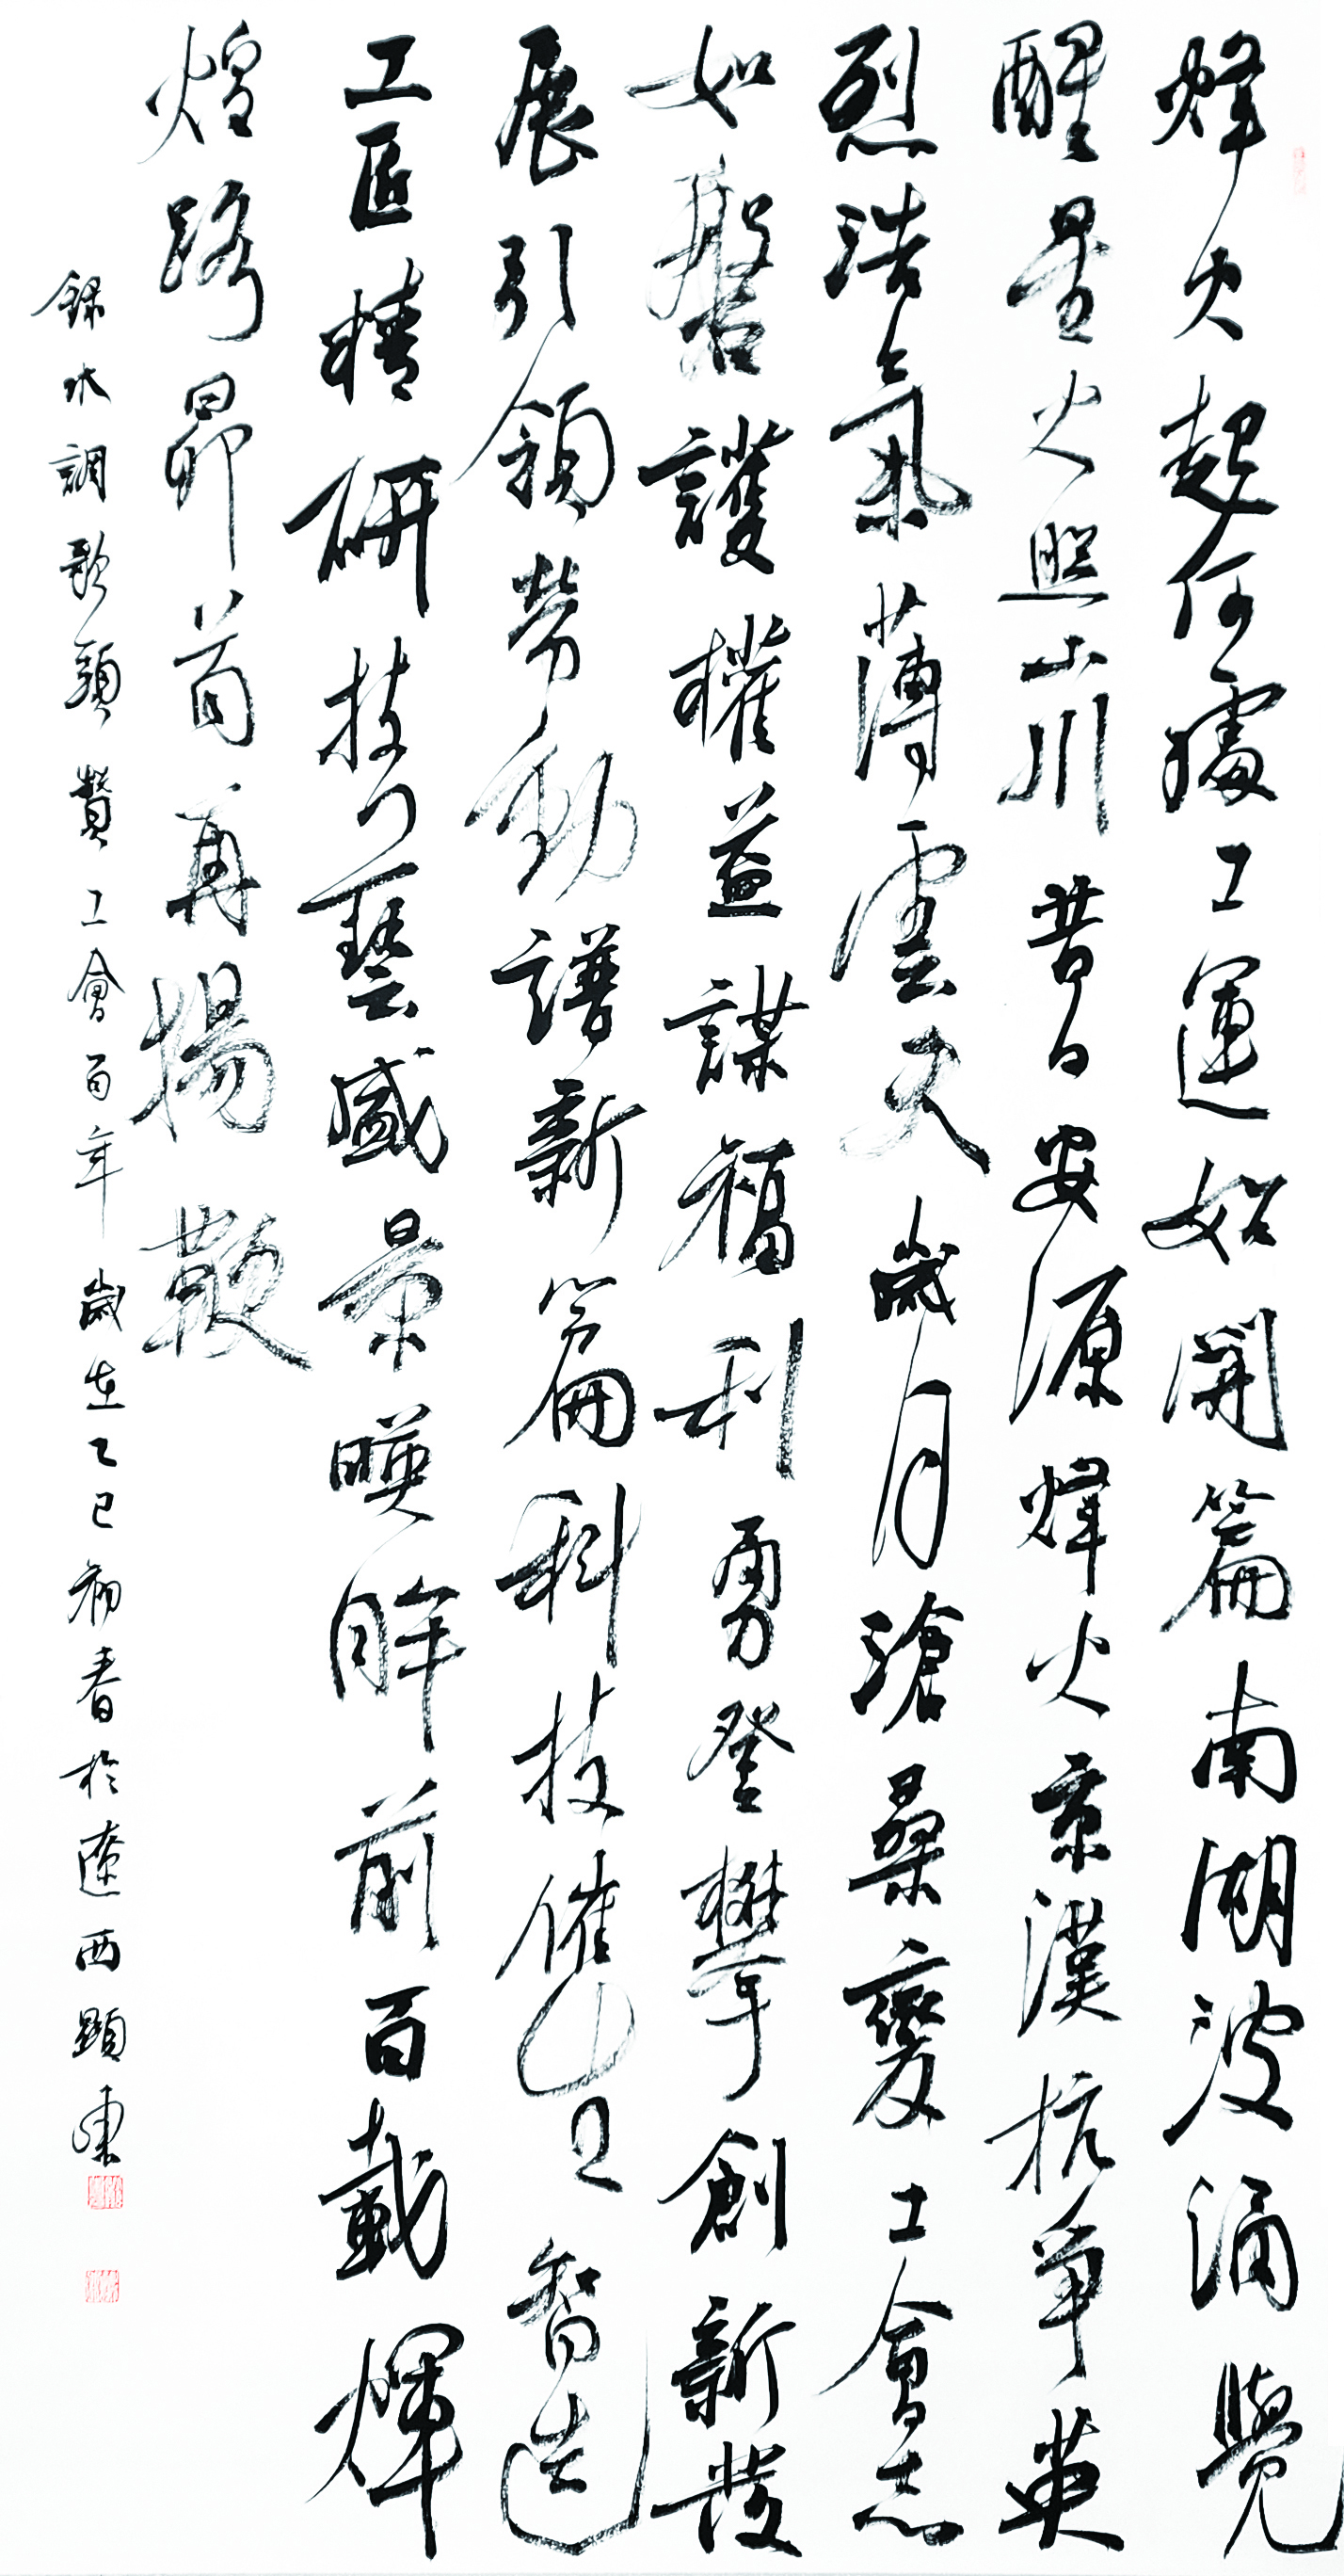 烽火起何處工運始開篇南湖波涌覺
醒星火照山川昔日安源烽火京漢抗爭英
烈浩氣薄雲天歲月滄桑變工會志
如磐護權益謀福利勇登攀創新發
展引領勞動譜新篇科技催生智造
工匠精研技藝盛景映眸前百載輝
煌路昂首再揚鞭
錄水調歌頭贊工會百年歲在乙巳初春於遼西顯東